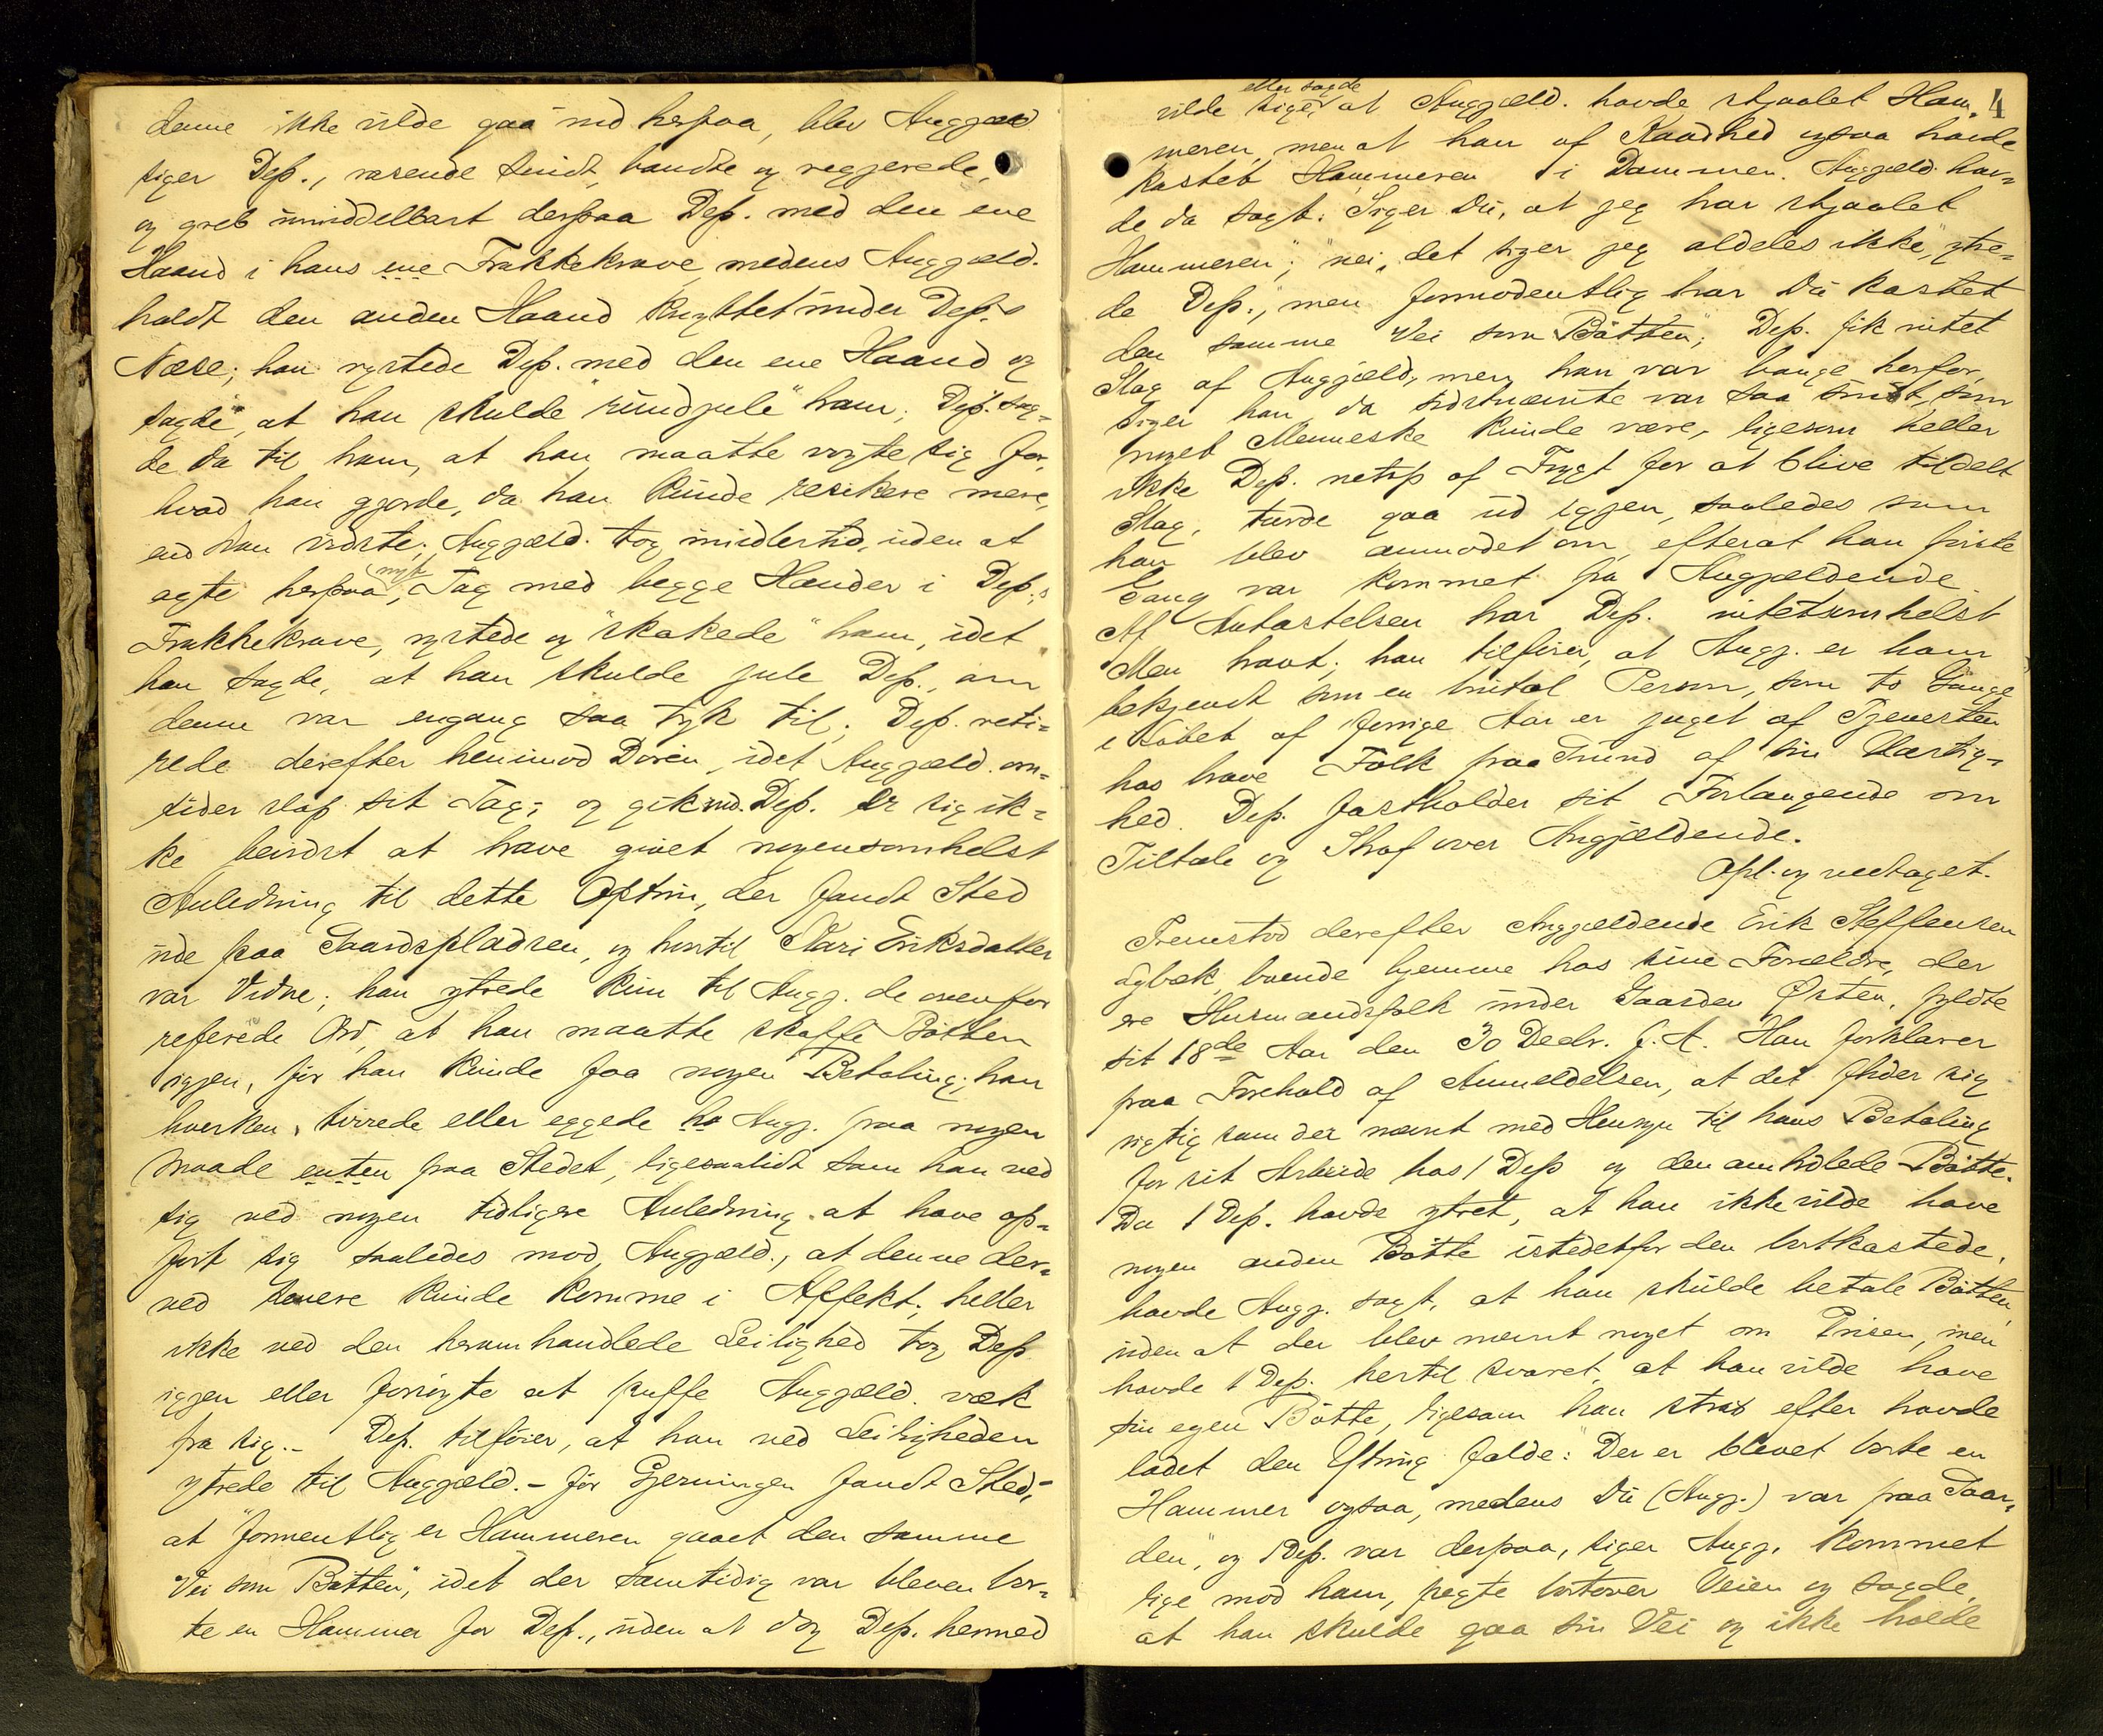 denne ikke vilde gaa ind herpaa, blev Anggjæld
siger Dep., rasende sindt, bandte og regjerede,
og greb umiddelbart derpaa Dep. med den ene
Haand i hans ene Frakkekrave, medens Anggjæld.
holdt den anden Haand knyttet under Dep.s
Næse; han rystede Dep. med den ene Haand og
sagde, at han skulde "rundjule" ham; Dep. sag-
de da til ham, at han maatte vogte sig for,
hvad han gjorde, da han kunde resikere mere,
end han vidste; Anggjæld. tog imidlertid, uden at
agte herpaa, nyt Tag med begge Hænder i Dep.s
Frakkekrave, rystede og "skakede" ham, idet
han sagde, at han skulde jule Dep., om
denne var engang saa tyk til; Dep. reti-
rede derefter henimod Døren, idet Anggjæld. om-
sider slap sit Tag; og gik ind. Dep. er sig ik-
ke bevidst at have givet nogensomhelst
Anledning til dette Optrin, der fandt Sted
ude paa Gaardspladsen, og hvortil Kari Eriksdatter
var Vidne; han ytrede kun til Angg. de ovenfor
referede Ord, at han maatte skaffe Bøtten
iggjen, før han kunde faa nogen Betaling; han
hverken tirrede eller eggede ha Angg. paa nogen
Maade enten paa Stedet, ligesaalidt som han ved
sig ved nogen tidligere Anledning at have op-
ført sig saaledes mod Anggjæld., at denne der-
ved senere kunde komme i Affekt; heller
ikke ved den heromhandlede Leilighed tog Dep
iggjen eller forsøgte at puffe Anggjæld. væk
fra sig. - Dep. tilføier, at han ved Leiligheden
ytrede til Anggjæld. - før Gjerningen fandt Sted, -
at "formentlig er Hammeren gaaet den samme
Vei som Bøtten", idet der samtidig var bleven bor-
te en Hammer for Dep., uden at dog Dep. hermed
4
eller sagde
vilde sige, at Anggjæld. havde stjaalet Ham-
meren, men at han af Kaadhed ogsaa havde
kastet Hammeren i Dammen. Anggjæld. hav-
de da sagt: "Siger Du, at jeg har stjaalet
Hammeren"; "nei, det siger jeg aldeles ikke", ytre-
de Dep., "men formodentlig har Du kastet
den samme Vei som Bøtten"; Dep. fik intet
Slag af Anggjæld., men han var bange herfor,
siger han, da sidstnævnte var saa sindt, som
noget Menneske kunde være, ligesom heller
ikke Dep. netop af Frygt for at blive tildelt
Slag, turde gaa ud iggjen, saaledes som
han blev anmodet om, efterat han første
Gang var kommet fra Anggjældende.
Af Antastelsen har Dep. intetsomhelst
Men havt; han tilføier, at Angg. er ham
bekjendt som en brutal Person, som to Gange
i Løbet af forrige Aar er jaget af Tjenesten
hos brave Folk paa Grund af sin Uartig-
hed. Dep. fastholder sit Forlangende om
Tiltale og Straf over Anggjældende.
Opl. og vedtaget.
Fremstod derefter Anggjældende Erik Steffensen
boende hjemme hos sine Forældre, der
ere Husmandsfolk under Gaarden Østen, fyldte
sit 18de Aar den 30 Decbr. f. A. Han forklarer
paa Forehold af Anmeldelsen, at det forholder sig
rigtig som der nævnt med Hensyn til hans Betaling
for sit Arbeide hos 1 Dep og den omhdlede Bøtte.
Da 1 Dep. havde ytret, at han ikke vilde have
nogen anden Bøtte istedetfor den bortkastede,
havde Angg. sagt, at han skulde betale Bøtten,
uden at der blev nævnt noget om Prisen, men
havde 1 Dep. hertil svaret, at han vilde have
sin egen Bøtte, ligesom han strax efter havde
ladet den Ytring falde: "Der er blevet borte en
Hammer ogsaa, medens Du (Angg.) var paa Gaar-
den", og 1 Dep. var derpaa, siger Angg. kommet
lige mod ham, pegte bortover Veien og sagde,
at han skulde gaa sin Vei og ikke holde